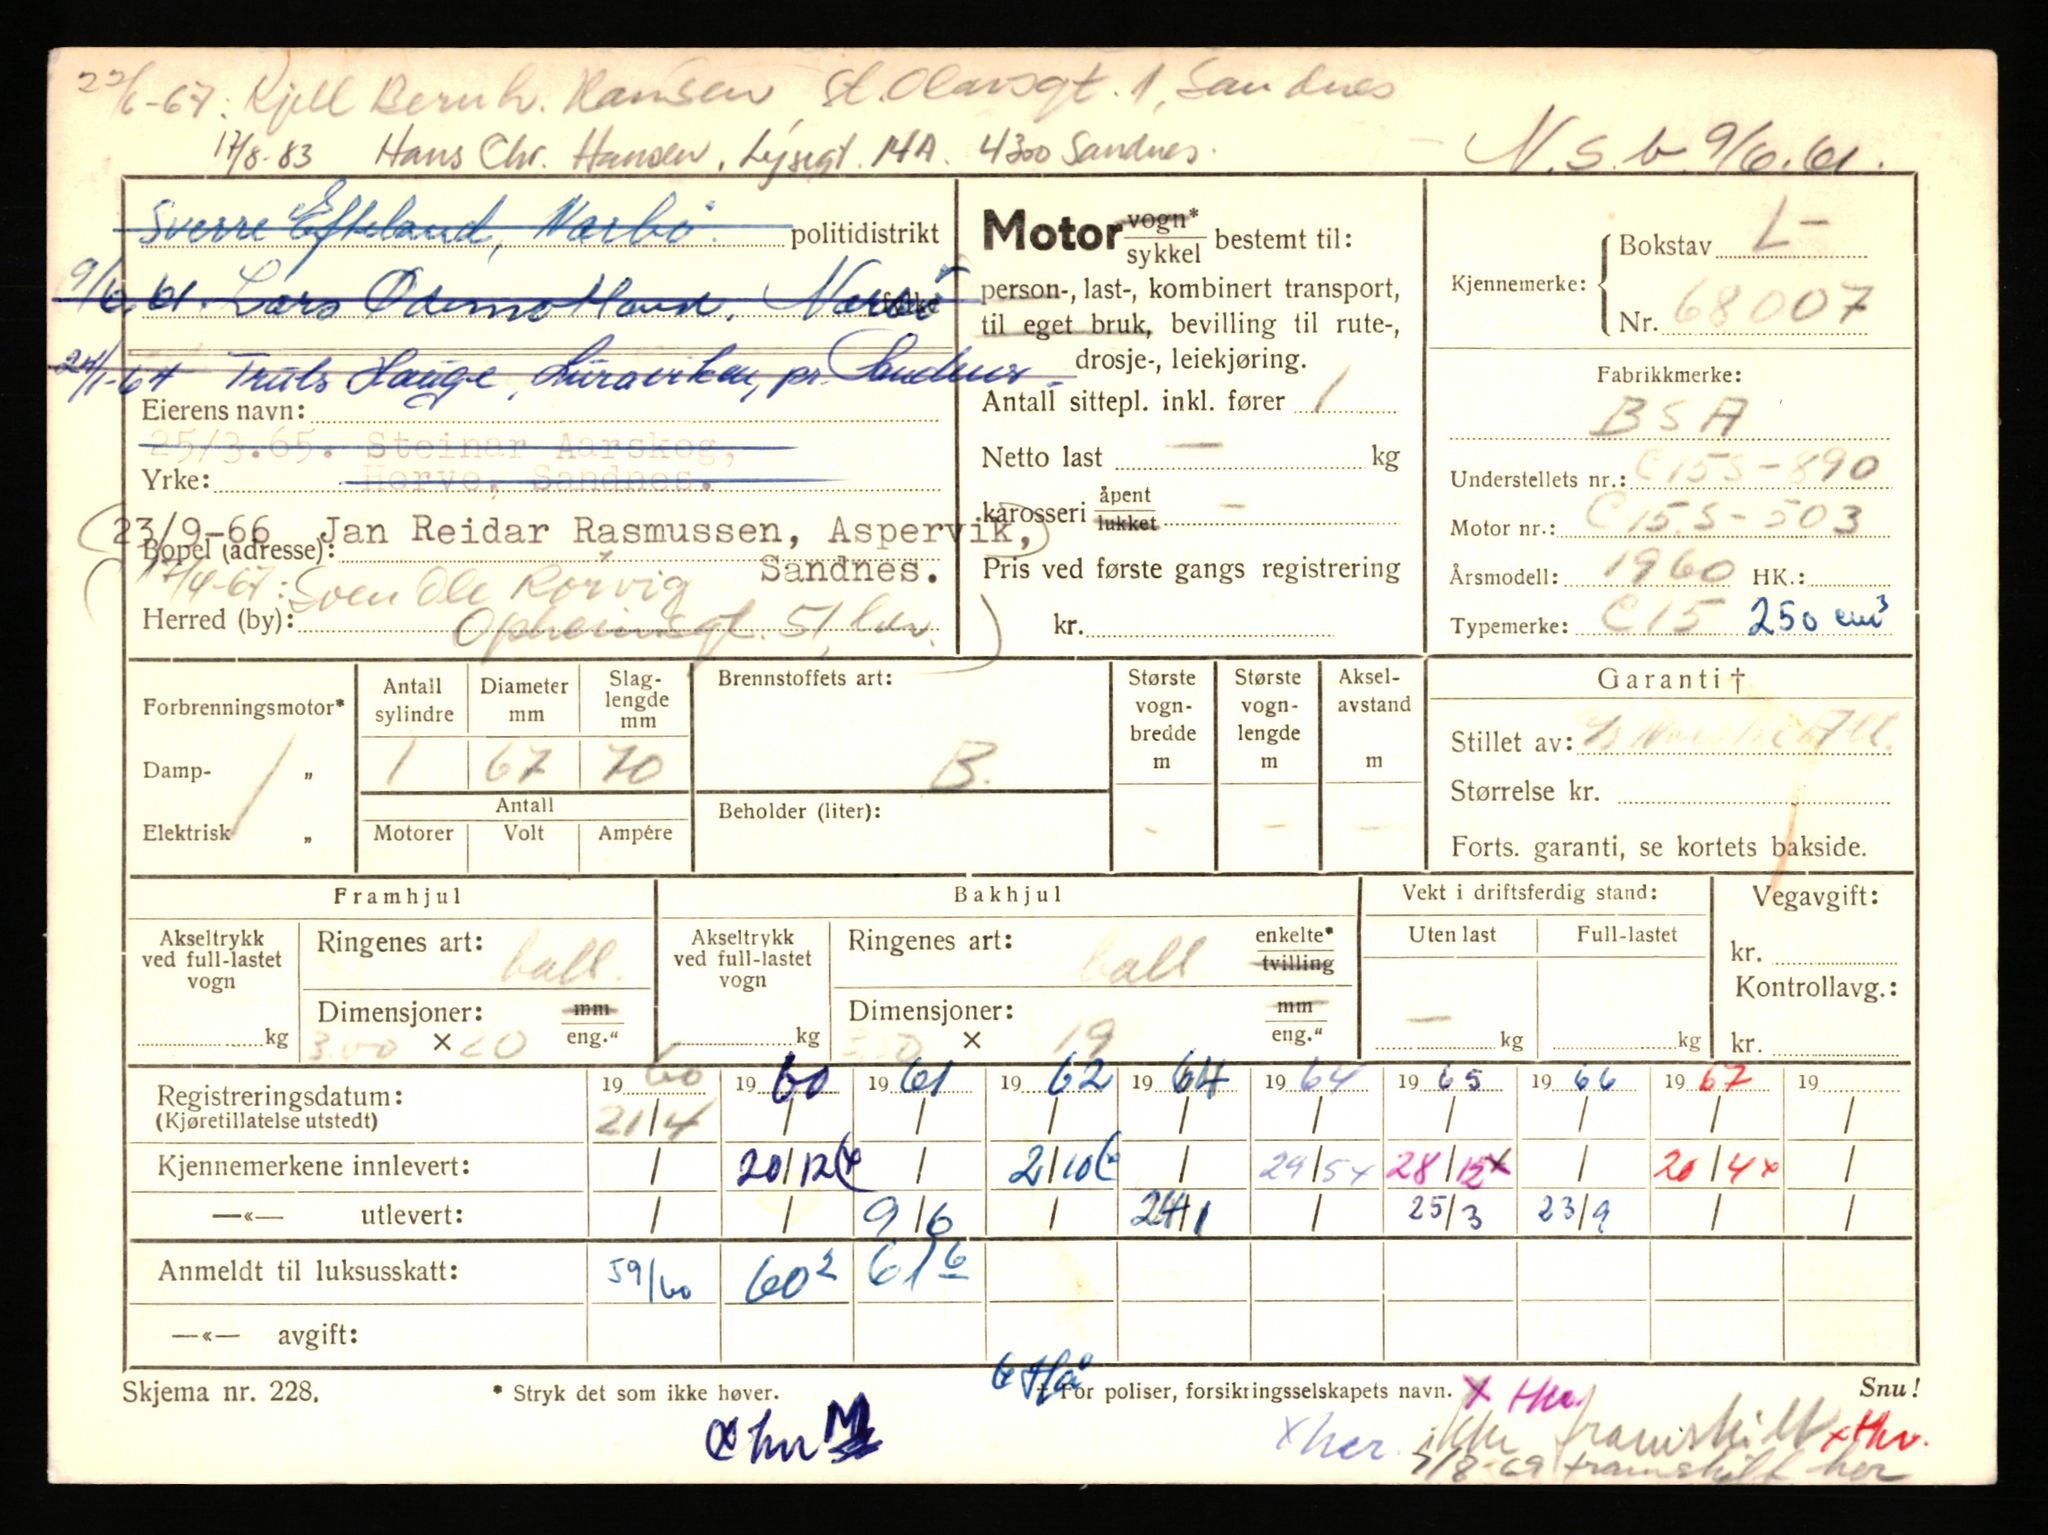 22/6-67: Kjell Bernh. Hansen St. Olavsgt. 1, Sandnes
17/8-83 Hans Chr. Hansen, Lysegt. 14A. 4300 Sandnes.
N.S.b. 9/6.61.
Sverre Efteland, Nærbø. politidistrikt
9/6.61. Lars Ødemotland, Nærbø
24/1-64 Truls Hauge, Luraviken, pr. Sandnes
Eierens navn:
25/3.65. Steinar Aarskog,
Yrke: Horve, Sandnes.
23/9-66 Jan Reidar Rasmussen, Aspervik,
Bopel (adresse):
Sandnes.
17/4-67: Sven Ole Rorvig
Herred (by): Opheimsgt. 51,
Motor vogn*/sykkel bestemt til:
person-, last-, kombinert transport,
til eget bruk, bevilling til rute-,
drosje-, leiekjøring.
Antall sittepl. inkl. fører 1
Netto last — kg
karosseri åpent/lukket –
Pris ved første gangs registrering
kr.
Kjennemerke: Bokstav L-
Nr. 68007
Fabrikkmerke:
BSA
Understellets nr.: C15S-890
Motor nr.: C15S-503
Årsmodell: 1960 HK.:
Typemerke: C15 250 cm³
Forbrenningsmotor*
Damp- „
Elektrisk „
Antall sylindre 1
Diameter mm 67
Slag-lengde mm 70
Antall
Motorer Volt Ampére
Brennstoffets art:
B.
Beholder (liter):
Største vogn-bredde m -
Største vogn-lengde m –
Aksel-avstand m –
Garanti †
Stillet av:
Størrelse kr.
Forts. garanti, se kortets bakside.
Framhjul
Akseltrykk ved full-lastet vogn
kg
Ringenes art: ball.
Dimensjoner: mm/eng."
3.00 × 20
Bakhjul
Akseltrykk ved full-lastet vogn
kg
Ringenes art: ball enkelte*/tvilling
Dimensjoner: mm/eng."
3.50 × 19
Vekt i driftsferdig stand:
Uten last Full-lastet
— kg kg
Vegavgift:
kr.
Kontrollavg.:
kr.
19 60 19 60 19 61 19 62 19 64 19 64 19 65 19 66 19 67 19
Registreringsdatum: 21/4 / / / / / / / / /
(Kjøretillatelse utstedt)
Kjennemerkene innlevert: / 20/12 / 2/10 / 29/5x 28/12x / 20/4x /
—«— utlevert: / / 9/6 / 24/1 / 25/3 23/9 / /
Anmeldt til luksusskatt: 59/60 60² 61 6
—«— avgift:
Skjema nr. 228.
* Stryk det som ikke høver.
† For poliser, forsikringsselskapets navn.
Snu!
Hå
x Her.
x her.
ikke framskilt
x Her.
5/8-69 framskilt her